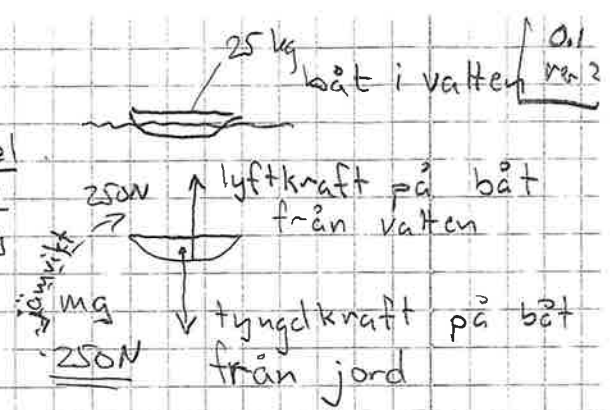 25 kg
båt i vatten
0.1
250N
lyftkraft på båt
från vatten
jämvikt
mg
tyngdkraft på båt
250N
från jord